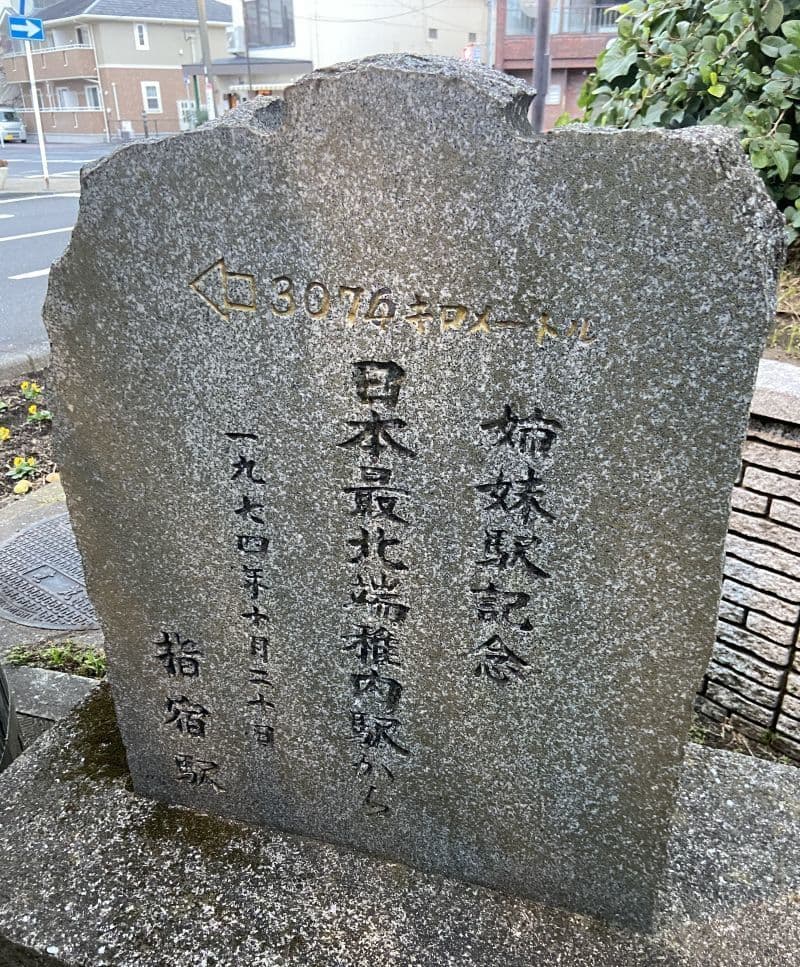 3074キロメートル
姉妹駅記念
日本最北端稚内駅から
一九七四年十月二十日
指宿駅